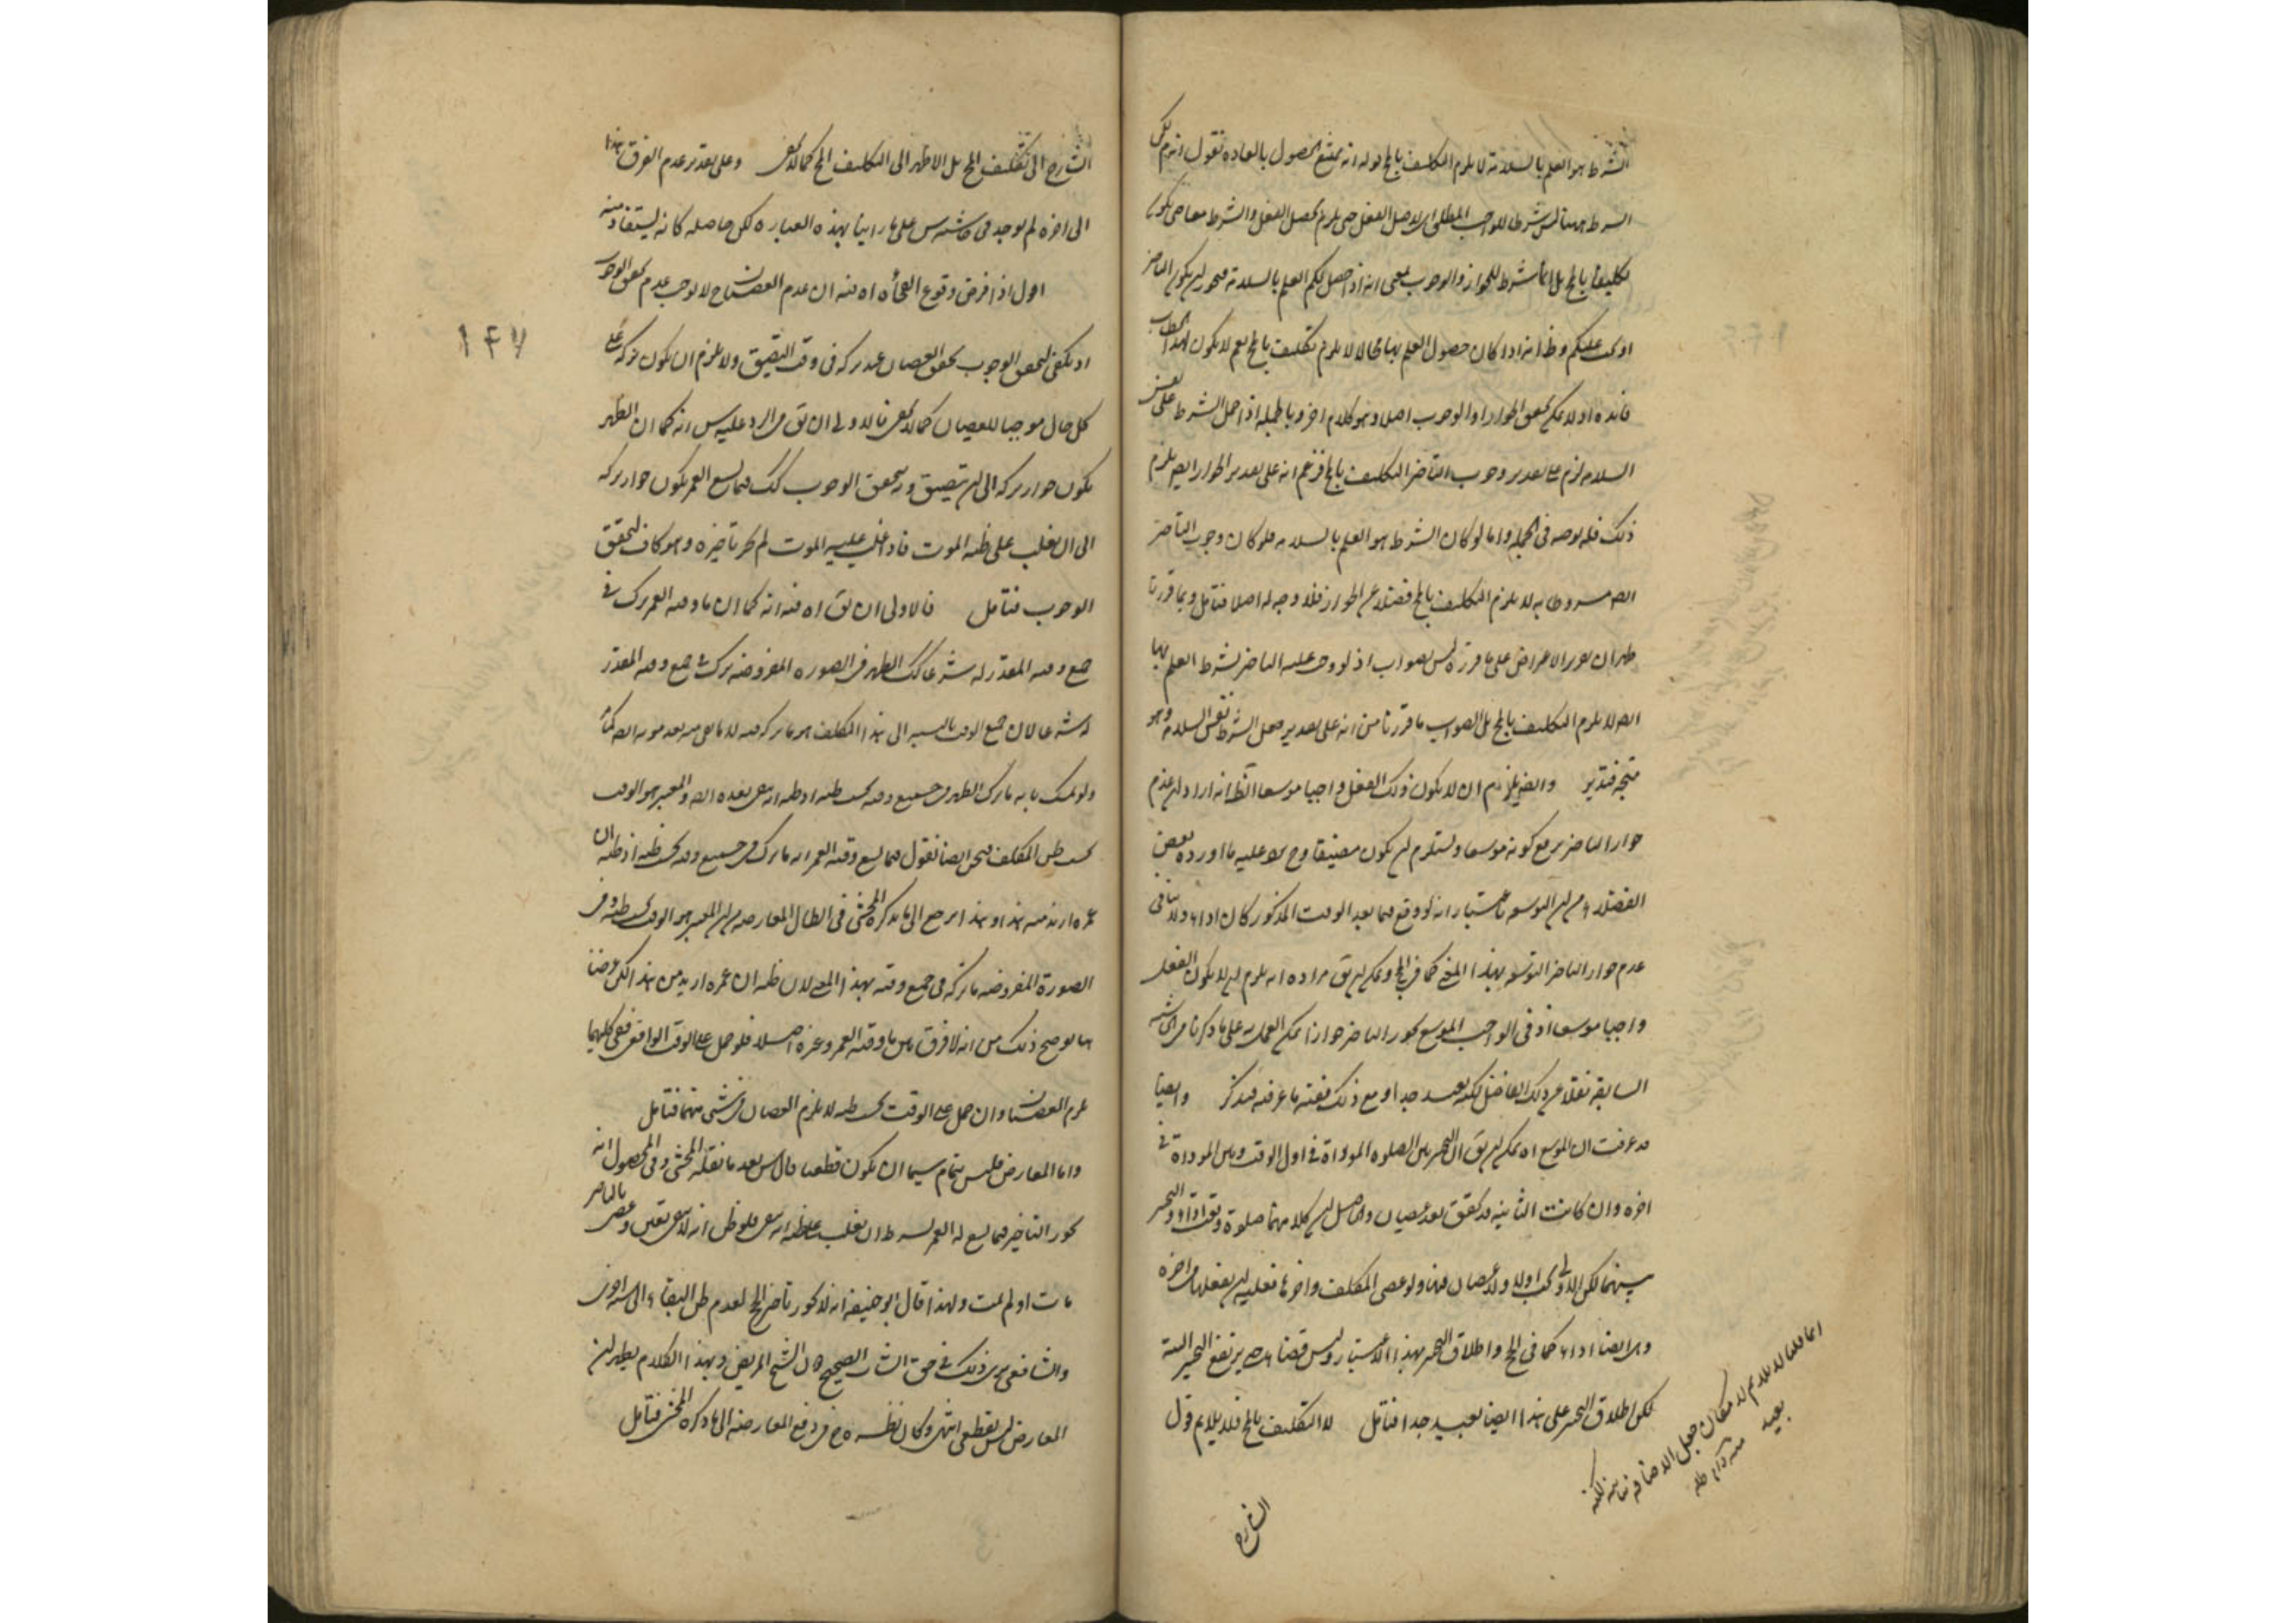 الشرط هو العلم بالسلامة لا يلزم التكليف بالمح قوله انه يمتنع الحصول بالعادة نقول انما
الشرط ههنا ليس شرطا للواجب المطلق اى لاصل الفعل حتى يلزم تحصيل الفعل والشرط معا حتى يكون
تكليفا بالمح بل انما شرط للجواز والوجوب بمعنى انه اذا حصل لكم العلم بالسلامة فيجوز لكم التاخير
او يجب عليكم وظ انه اذا كان حصول العلم بها محالا لا يلزم تكليف بالمح نعم لا يكون لهذا الخطاب
فائدة اذ لا يمكن تحقق الجواز او الوجوب اصلا وهو كلام اخر وبالجملة اذا حمل الشرط على نفس
السلامة لزم على تقدير وجوب التاخير التكليف بالمح فزعم انه على تقدير الجواز ايضا يلزم
ذلك فله توجه فى الجملة واما لو كان الشرط هو العلم بالسلامة فلو كان وجوب التاخير
ايضا مشروطا به لا يلزم التكليف بالمح فضلا عن الجواز فلا وجه له اصلا فتامل وبما قررنا
ظهر ان تقرير الاعتراض على ما قرره ليس بصواب اذ لو وجب عليه التاخير بشرط العلم بها
ايضا لا يلزم التكليف بالمح بل الصواب ما قررنا من انه على تقدير جعل الشرط نفس السلامة وهو
متجه فتدبر وايضا يلزم ان لا يكون ذلك الفعل واجبا موسعا الظ انه اراد ان عدم
جواز التاخير يرفع كونه موسعا ويستلزم ان يكون مضيقا وح يرد عليه ما اورده بعض
الفضلاء من ان التوسعة باعتبار انه لو وقع فيما بعد الوقت المذكور كان اداء ولا ينافى
عدم جواز التاخير التوسعة بهذا المعنى كما فى الحج ويمكن ان يق مراده انه يلزم ان لا يكون الفعل
واجبا موسعا اذ فى الواجب الموسع يجوز التاخير جوازا يمكن العمل به على ما ذكرنا من الحاشية
السابقة نقلا عن ذلك الفاضل لكنه بعيد جدا ومع ذلك ففيه ما عرفته فتذكر وايضا
قد عرفت ان الموسع اه يمكن ان يق ان التخيير بين الصلوة المؤداة فى اول الوقت وبين المؤداة فى
اخره وان كانت الثانية قد تحقق بعد عصيان والحاصل ان كلا منهما صلوة وقعت اداء والتخيير
بينهما لكن الاولى يجب اولا ولا عصيان فيها ولو عصى المكلف واخرها فعليه ان يفعلها فى اخره
وهى ايضا اداء كما فى الحج واطلاق التخيير بهذا الاعتبار وليس قضاء حتى يرتفع التخيير البتة
لكن اطلاق التخيير على هذا ايضا بعيد جدا فتامل لا التكليف بالمح فلا يلايم قول
انما قلنا لا يلايم لامكان جعل الاضافة بيانية لكنه
بعيد
منه دام ظله
الشارح
الشارح الى تكليف المح بل الاظهر الى التكليف المح كما لا يخفى وعلى تقدير عدم الفرق هذا
الى اخره لم يوجد فى حاشيته س على ما راينا بهذه العبارة لكن حاصله كانه يستفاد منه
اقول اذا فرض وقوع الفجأة اه فيه ان عدم العصيان ح لا يوجب عدم تحقق الوجوب
اذ يكفى لتحقق الوجوب تحقق العصيان عند تركه فى وقت التضيق ولا يلزم ان يكون تركه على
كل حال موجبا للعصيان كما لا يخفى فالاولى ان يق فى الرد عليه س انه كما ان الظهر
يكون جواز تركه الى ان يتضيق وبه يتحقق الوجوب كك فيما يسع العمر يكون جواز تركه
الى ان يغلب على ظنه الموت فاذا غلب عليه الموت لم يجز تاخيره وهو كاف لتحقق
الوجوب فتامل فالاولى ان يق اه فيه انه كما ان ما وقته العمر ترك فى
جميع وقته المقدر له شرعا كك الظهر فى الصورة المفروضة ترك فى جميع وقته المقدر
له شرعا لان جميع الوقت بالنسبة الى هذا المكلف هو ما تركه فيه لا ما بقى منه بعد موته ايضا
ولو تمسك بانه ما ترك الظهر فى جميع وقته بحسب ظنه اذ ظنه انه يبقى بعده ايضا والمعتبر هو الوقت
بحسب ظن المكلف فنحن ايضا نقول فيما يسع وقته العمر انه ما ترك فى جميع وقته بحسب ظنه اذ ظنه ان
عمره ازيد منه هذا وهذا يرجع الى ما يذكره المحشى فى ابطال المعارضة من ان المعتبر هو الوقت بحسب ظنه وفى
الصورة المفروضة ما تركه فى جميع وقته بهذا المعنى لان ظنه ان عمره ازيد من هذا لكن غرضنا
ههنا توضيح ذلك من انه لا فرق بين ما وقته العمر وغيره اصلا فلو حمل على الوقت الواقعى ففى كليهما
يلزم العصيان وان حمل على الوقت بحسب ظنه لا يلزم العصيان فى شىء منهما فتامل
واما المعارض فليس بتمام سيما ان يكون قطعيا قال س بعد ما نقله المحشى وفى المحصول انه
يجوز التاخير فيما يسع له العمر بشرط ان يغلب على ظنه انه يبقى فلو ظن انه لا يبقى تعين وعصى بالتاخير
مات او لم يمت ولهذا قال ابو حنيفة انه لا يجوز تاخير الحج لعدم ظن البقاء الى سنة اخرى
والشافعى يرى ذلك فى حق الشاب الصحيح دون الشيخ المريض وبهذا الكلام يظهر ان
المعارض ليس بقطعى انتهى وكان نظره ره فى دفع المعارضة الى ما ذكره المحشى فتامل
۱۴۷